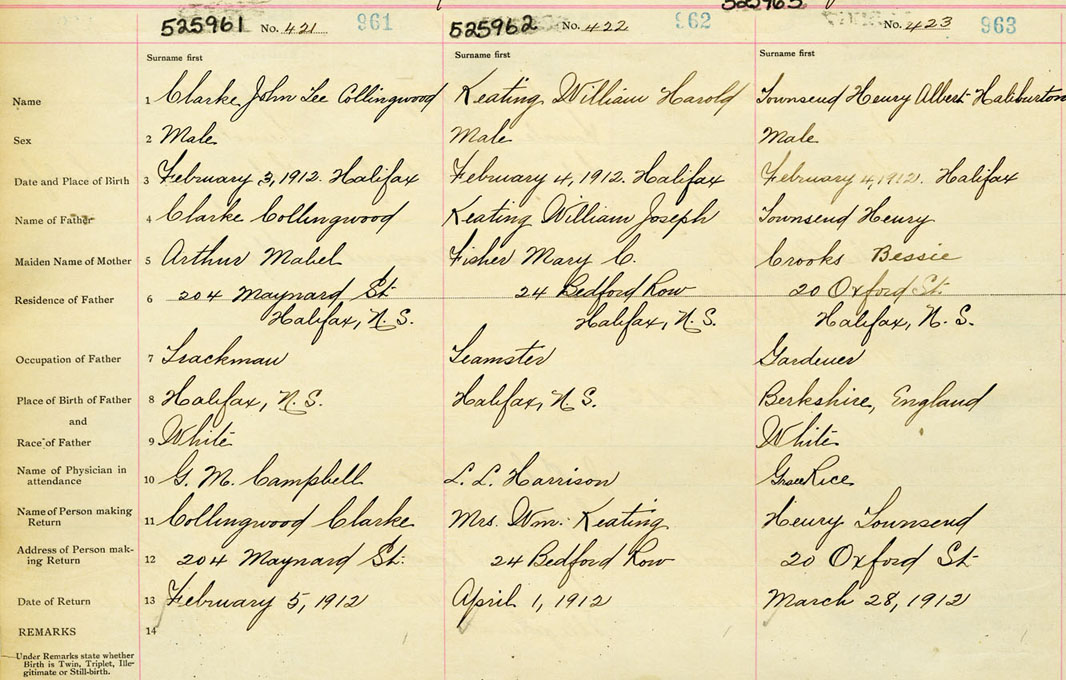 525961 No. 421 961 525962 No. 422 962 525963 No. 423 963
Surname first Surname first Surname first
Name 1 Clarke John Lee Collingwood Keating William Harold Townsend Henry Albert Haliburton
Sex 2 Male Male Male
Date and Place of Birth 3 February 3, 1912. Halifax February 4, 1912. Halifax February 4, 1912. Halifax
Name of Father 4 Clarke Collingwood Keating William Joseph Townsend Henry
Maiden Name of Mother 5 Arthur Mabel Fisher Mary C. Crooks Bessie
Residence of Father 6 204 Maynard St. 24 Bedford Row 20 Oxford St.
Halifax, N.S. Halifax, N.S. Halifax, N.S.
Occupation of Father 7 Trackman Teamster Gardener
Place of Birth of Father 8 Halifax, N.S. Halifax, N.S. Berkshire, England
and
Race of Father 9 White White
Name of Physician in
attendance 10 G. M. Campbell L. L. Harrison Grace Rice
Name of Person making
Return 11 Collingwood Clarke Mrs. Wm. Keating Henry Townsend
Address of Person mak-
ing Return 12 204 Maynard St. 24 Bedford Row 20 Oxford St
Date of Return 13 February 5, 1912 April 1, 1912 March 28, 1912
REMARKS 14
Under Remarks state whether
Birth is Twin, Triplet, Ille-
gitimate or Still-birth.